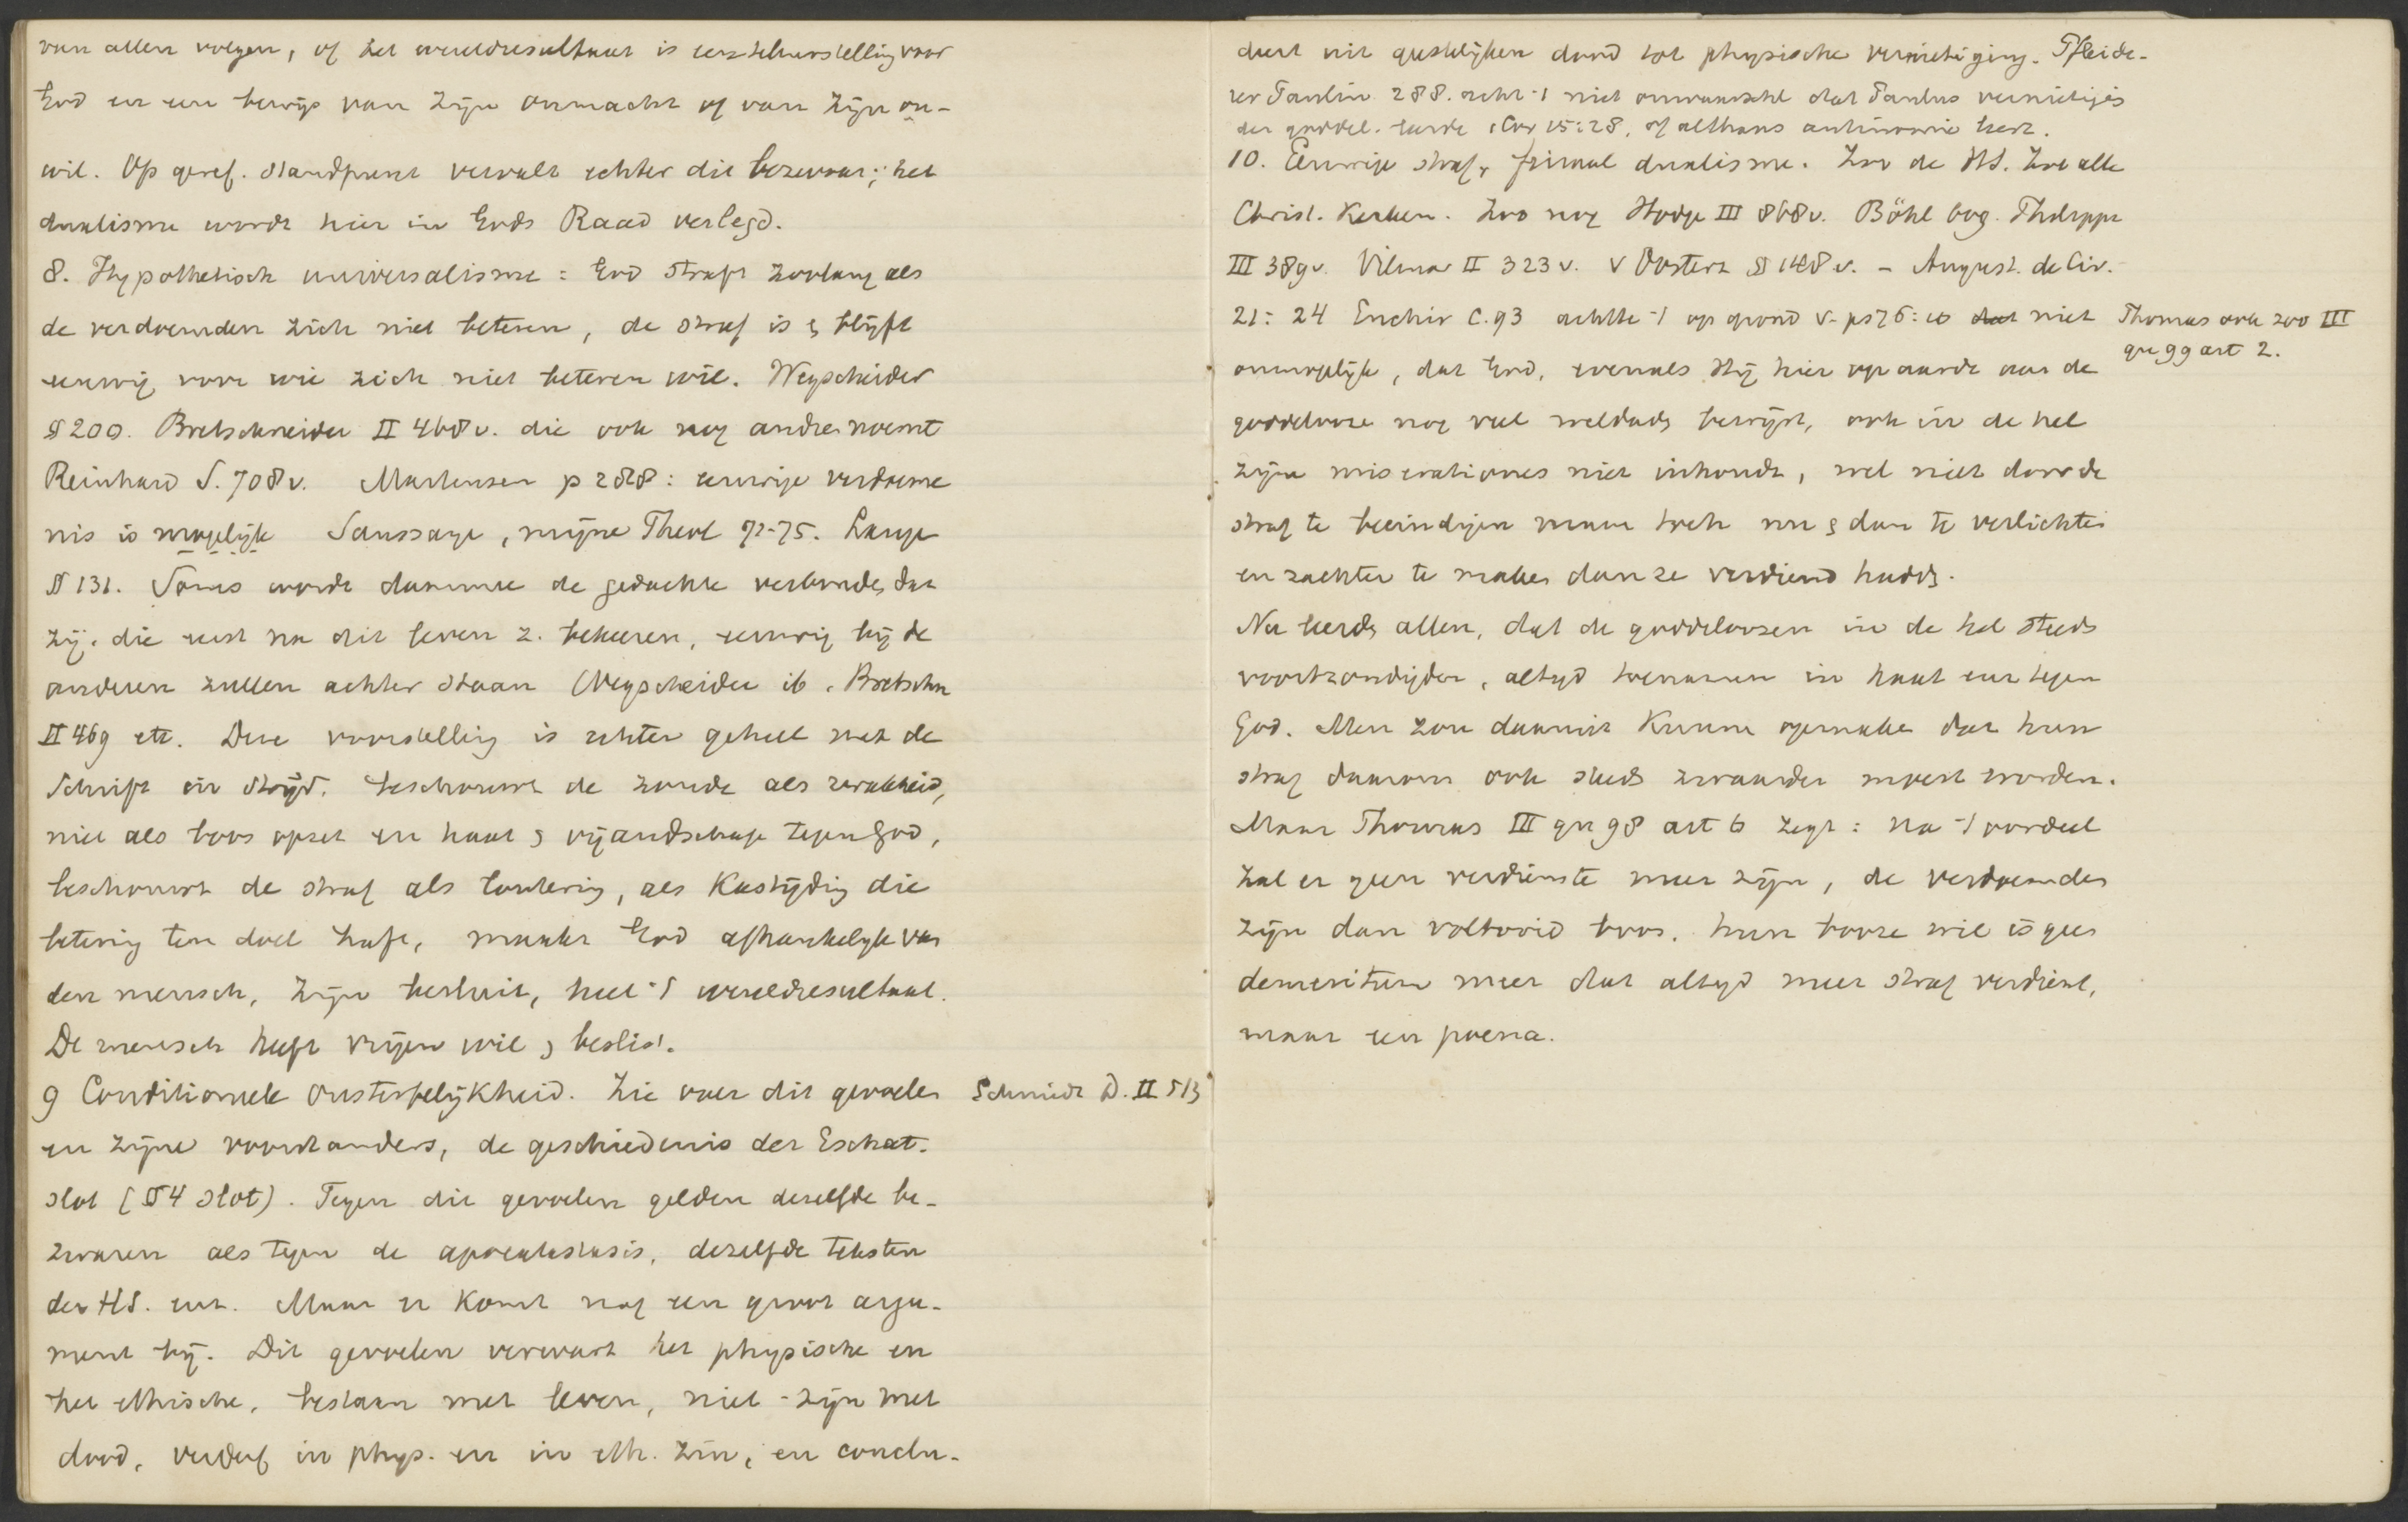 van allen volgen, of het wereldresultaat is een teleurstelling voor
God en een bewijs van zijn onmacht of van zijn on-
wil. Op geref. standpunt vervalt echter dit bezwaar; het
dualisme wordt hier in Gods Raad verlegd.
8. Hypothetisch universalisme: God straft zoolang als
de verdoemden zich niet beteren, de straf is & blijft
eeuwig voor wie zich niet beteren wil. Wegscheider
§ 200. Bretschneider II 468 v. die ook nog andre noemt
Reinhard S. 708 v. Martensen p 288: eeuwige verdoeme
nis is mogelijk Saussaye, mijne Theol 72-75. Lange
§ 131. Soms wordt daarmee de gedachte verbonden dat
zij, die eerst na dit leven z. bekeeren, eeuwig bij de
anderen zullen achter staan (Wegscheider ib. Bretschn
II 469 etc. Deze voorstelling is echter geheel met de
Schrift in strijd. beschouwt de zonde als zwakheid,
niet als boos opzet en haat & vijandschap tegen God,
beschouwt de straf als loutering, als kastijding die
betering ten doel heeft, maakt God afhankelijk van
den mensch, zijn besluit, heel 't wereldresultaat.
De mensch heeft vrijen wil & beslist.
9 Conditioneele onsterfelijkheid. Zie over dit gevoelen
Schmidt D. II 513
en zijne voorstanders, de geschiedenis der Eschat.
slot (§ 4 slot). Tegen dit gevoelen gelden dezelfde be-
zwaren als tegen de apocatastasis, dezelfde teksten
der HS. enz. Maar er komt nog een groot argu-
ment bij. Dit gevoelen verwart het physische en
het ethische, bestaan met leven, niet-zijn met
dood, verderf in phys. en in eth. zin, en conclu-
deert uit geestelijken dood tot physische vernietiging. Pfleide-
rer Paulin 288. acht 't niet onwaarschl dat Paulus vernietigis
der goddel. leerde 1 Cor 15:28, of althans antinomie heeft.
10. Eeuwige straf, finaal dualisme. Zoo de HS. Zoo alle
Christ. Kerken. Zoo nog Hodge III 868 v. Böhl bog. Philippi
III 389 v. Vilmar II 323 v. v Oosterz § 148 v. - August. de Civ.
21: 24 Enchir c. 93 achtte 't op grond v. ps 76: 10 dat niet
Thomas ook zoo III
qu 99 art 2.
onmogelijk, dat God, evenals Hij hier op aarde aan de
goddelooze nog veel weldadn bewijst, ook in de hel
zijn miserationes niet inhoudt, wel niet door de
straf te beeindigen maar toch nu & dan te verlichten
en zachter te maken dan ze verdiend hadde.
Nu leerdn allen, dat de goddeloozen in de hel steeds
voortzondigden, altijd toenamen in haat enz tegen
God. Men zou daaruit kunnen opmaken dat hun
straf daarom ook steeds zwaarder moest worden.
Maar Thomas III qu 98 art 6 zegt: na 't oordeel
zal er geen verdienste meer zijn, de verdoemden
zijn dan voltooid boos. hun booze wil is geen
demeritum meer dat altijd meer straf verdient,
maar een poena.